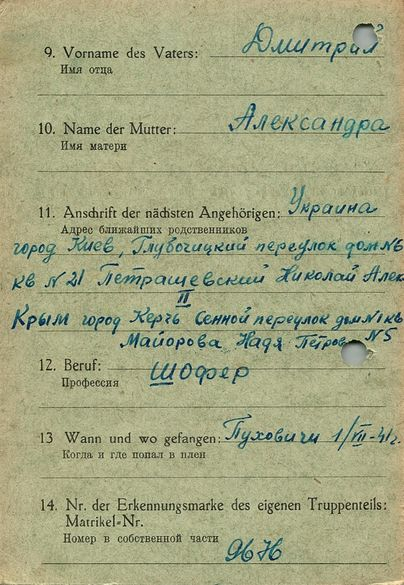 9. Vorname des Vaters: Дмитрий
Имя отца
10. Name der Mutter: Александра
Имя матери
11. Anschrift der nächsten Angehörigen: Украина
Адрес ближайших родственников
город Киев, Глубочицкий переулок дом №6
кв № 21 Петрашевский Николай Алек
II
Крым город Керчь Сенной переулок дом №1 кв
Майорова Надя Петров №5
12. Beruf: Шофер
Профессия
13 Wann und wo gefangen: Пуховичи 1/VII-41г.
Когда и где попал в плен
14. Nr. der Erkennungsmarke des eigenen Truppenteils:
Matrikel-Nr.
Номер в собственной части